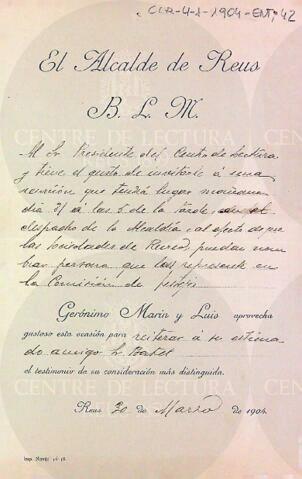 CLR-4-1-1904-ENT, 42
El Alcalde de Reus
B. L. M.
Al Sr Presidente del Centro de Lectura
y tiene el gusto de invitarle á una
reunión que tendrá lugar mañana
dia 31 á las 6 de la tarde, en el
despacho de la Alcaldía, al efecto de que
las Sociedades de Recreo, puedan nom
brar persona que las represente en
la Comisión de
Gerónimo Marin y Luis aprovecha
gustoso esta ocasión para reiterar á su estima
do amigo
el testimonio de su consideración más distinguida.
Reus 30 de Marzo de 1904
CENTRE DE LECTURA
CENTRE DE LECTURA